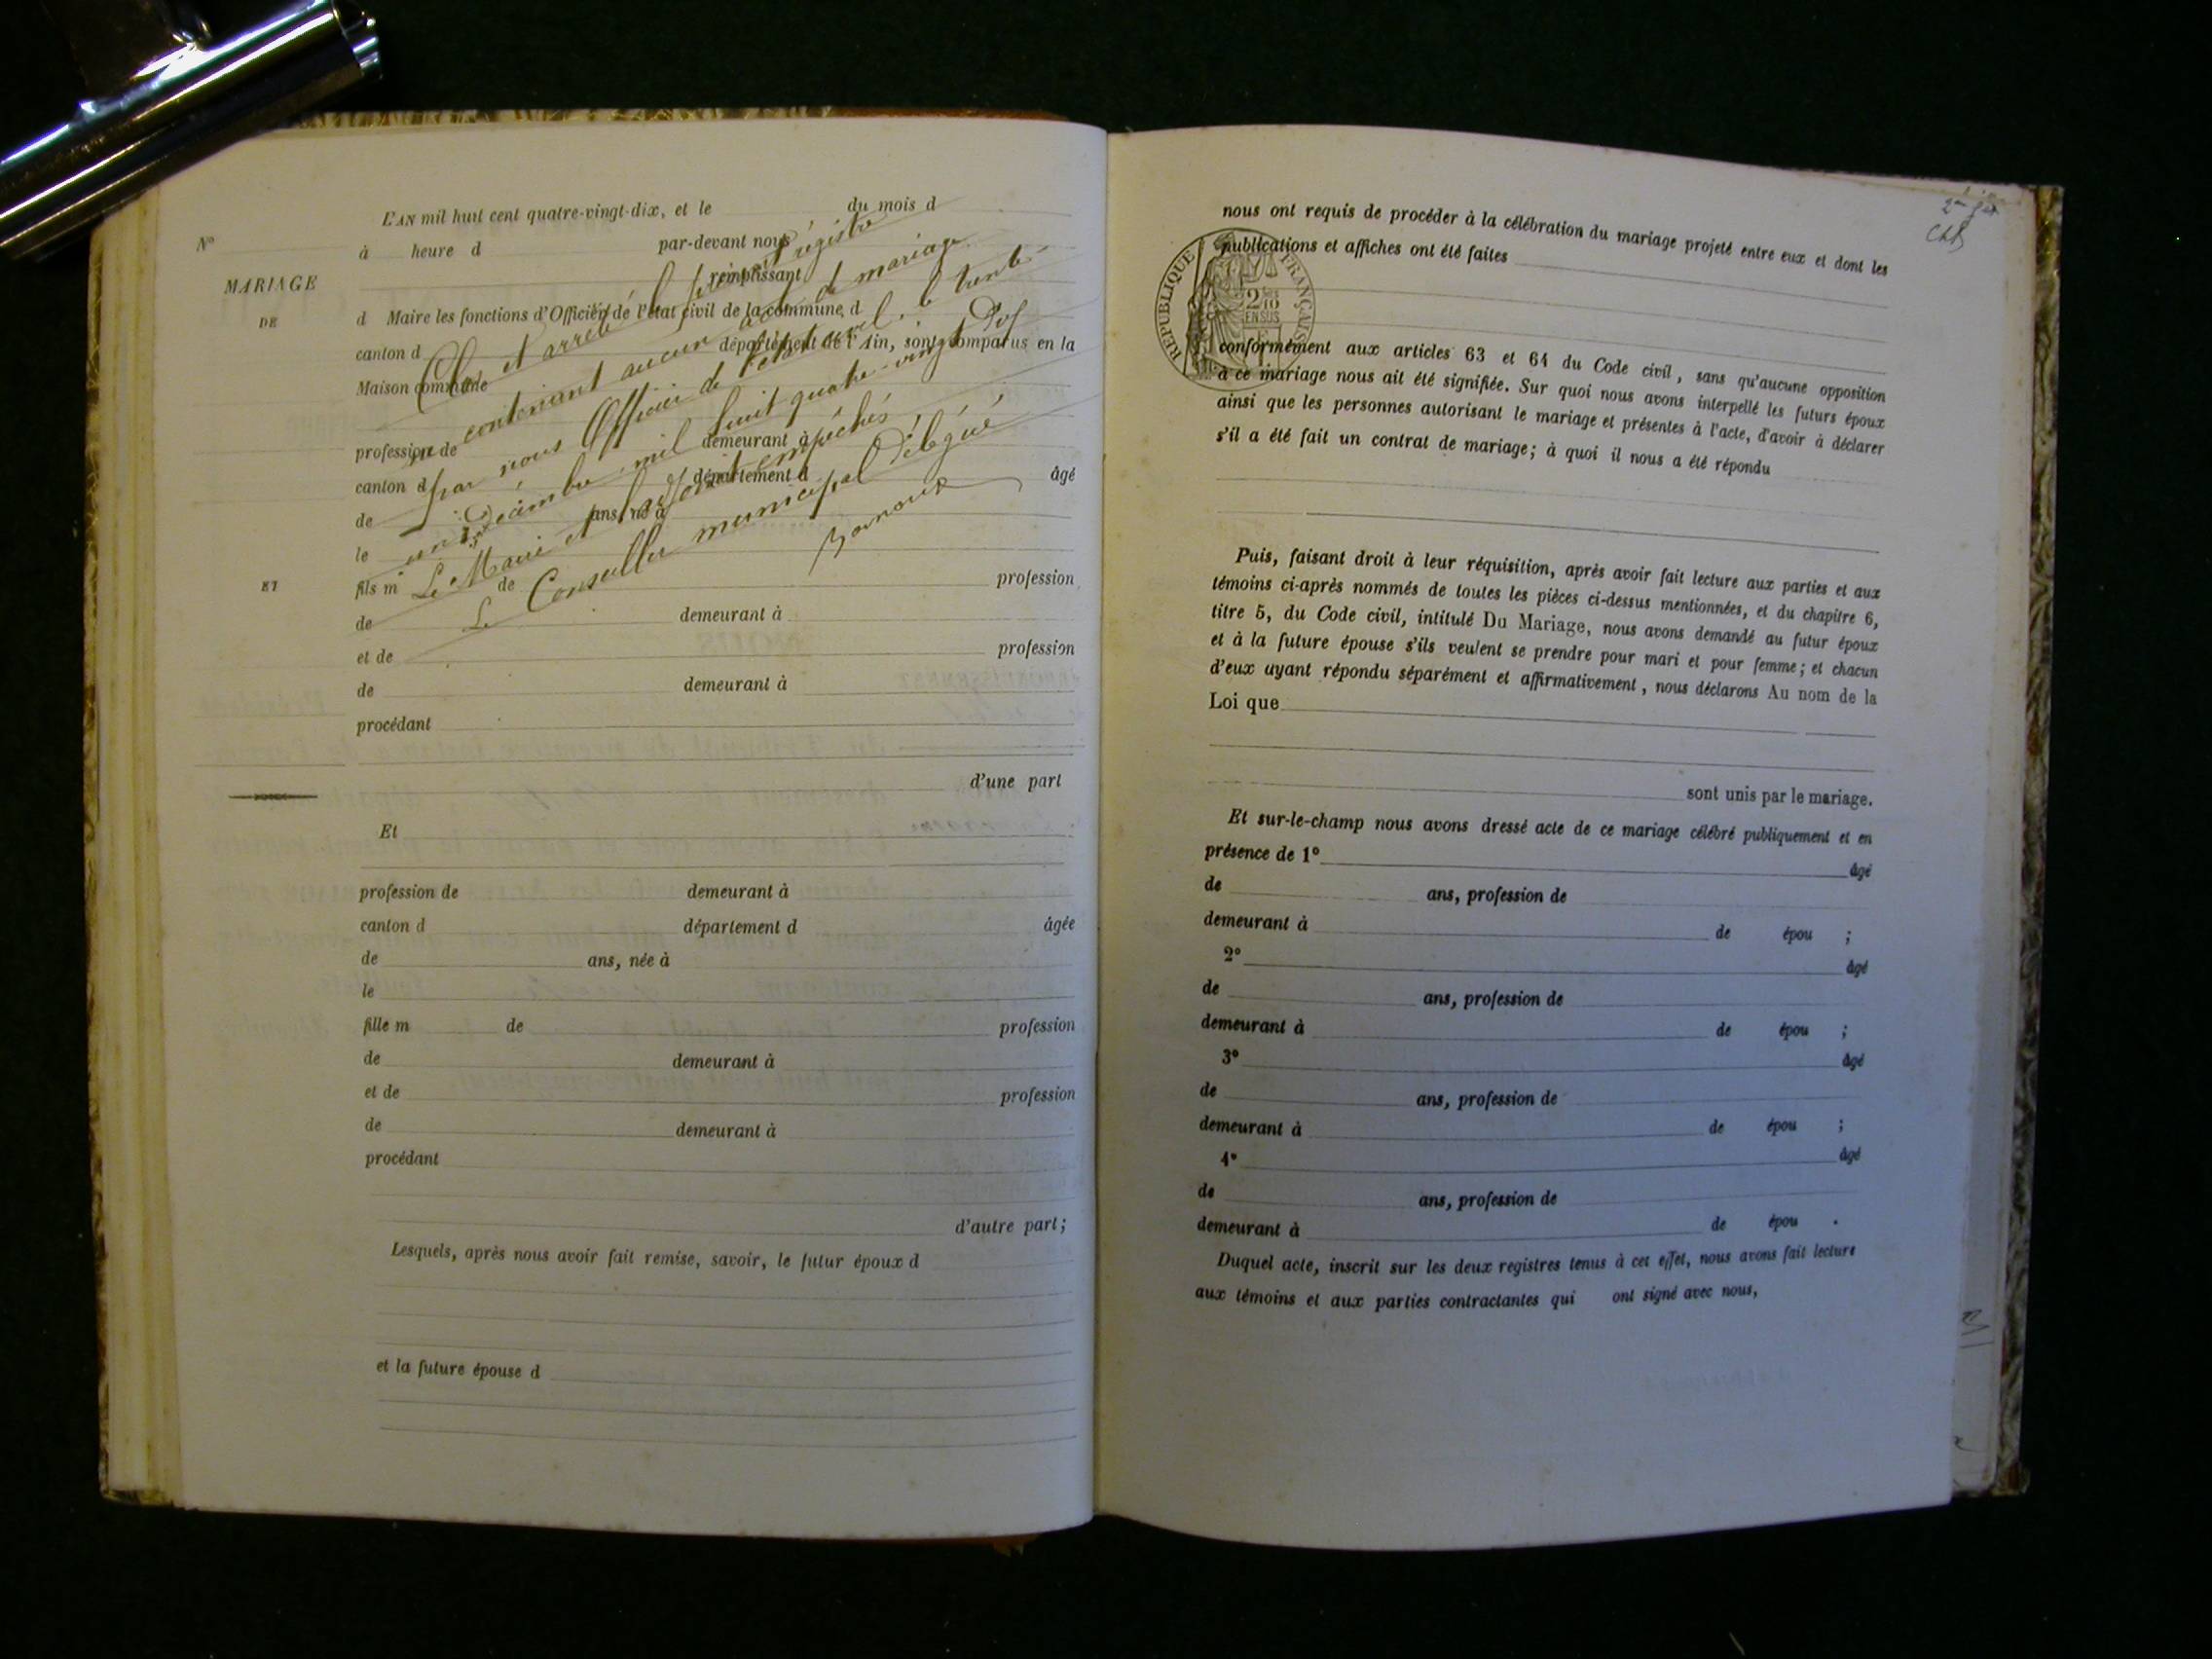 L'AN mil huit cent quatre-vingt-dix, et le du mois d
N° à heure d par-devant nous
remplissant
MARIAGE
DE
d Maire les fonctions d'Officier de l'état civil de la commune d
canton d département de l'Ain, sont comparus en la
Maison commune
profession de demeurant à
canton d département d âgé
de ans, né à
le
ET
fils m de profession
de demeurant à
et de profession
de demeurant à
procédant
d'une part
Clos et arrêté le présent registre
ne contenant aucun acte de mariage
par nous Officier de l'état civil. le trente
un Décembre mil huit quatre-vingt Dix
Le Maire et empêchés
Le Conseiller municipal Délégué
Et
profession de demeurant à
canton d département d âgée
de ans, née à
le
fille m de profession
de demeurant à
et de profession
de demeurant à
procédant
d'autre part;
Lesquels, après nous avoir fait remise, savoir, le futur époux d
et la future épouse d
2
nous ont requis de procéder à la célébration du mariage projeté entre eux et dont les
publications et affiches ont été faites
RÉPUBLIQUE FRANÇAISE
conformément aux articles 63 et 64 du Code civil, sans qu'aucune opposition
à ce mariage nous ait été signifiée. Sur quoi nous avons interpellé les futurs époux
ainsi que les personnes autorisant le mariage et présentes à l'acte, d'avoir à déclarer
s'il a été fait un contrat de mariage; à quoi il nous a été répondu
Puis, faisant droit à leur réquisition, après avoir fait lecture aux parties et aux
témoins ci-après nommés de toutes les pièces ci-dessus mentionnées, et du chapitre 6,
titre 5, du Code civil, intitulé Du Mariage, nous avons demandé au futur époux
et à la future épouse s'ils veulent se prendre pour mari et pour femme; et chacun
d'eux ayant répondu séparément et affirmativement, nous déclarons Au nom de la
Loi que
sont unis par le mariage.
Et sur-le-champ nous avons dressé acte de ce mariage célébré publiquement et en
présence de 1° âgé
de ans, profession de
demeurant à de épou ;
2° âgé
de ans, profession de
demeurant à de épou ;
3° âgé
de ans, profession de
demeurant à de épou ;
4° âgé
de ans, profession de
demeurant à de épou .
Duquel acte, inscrit sur les deux registres tenus à cet effet, nous avons fait lecture
aux témoins et aux parties contractantes qui ont signé avec nous,